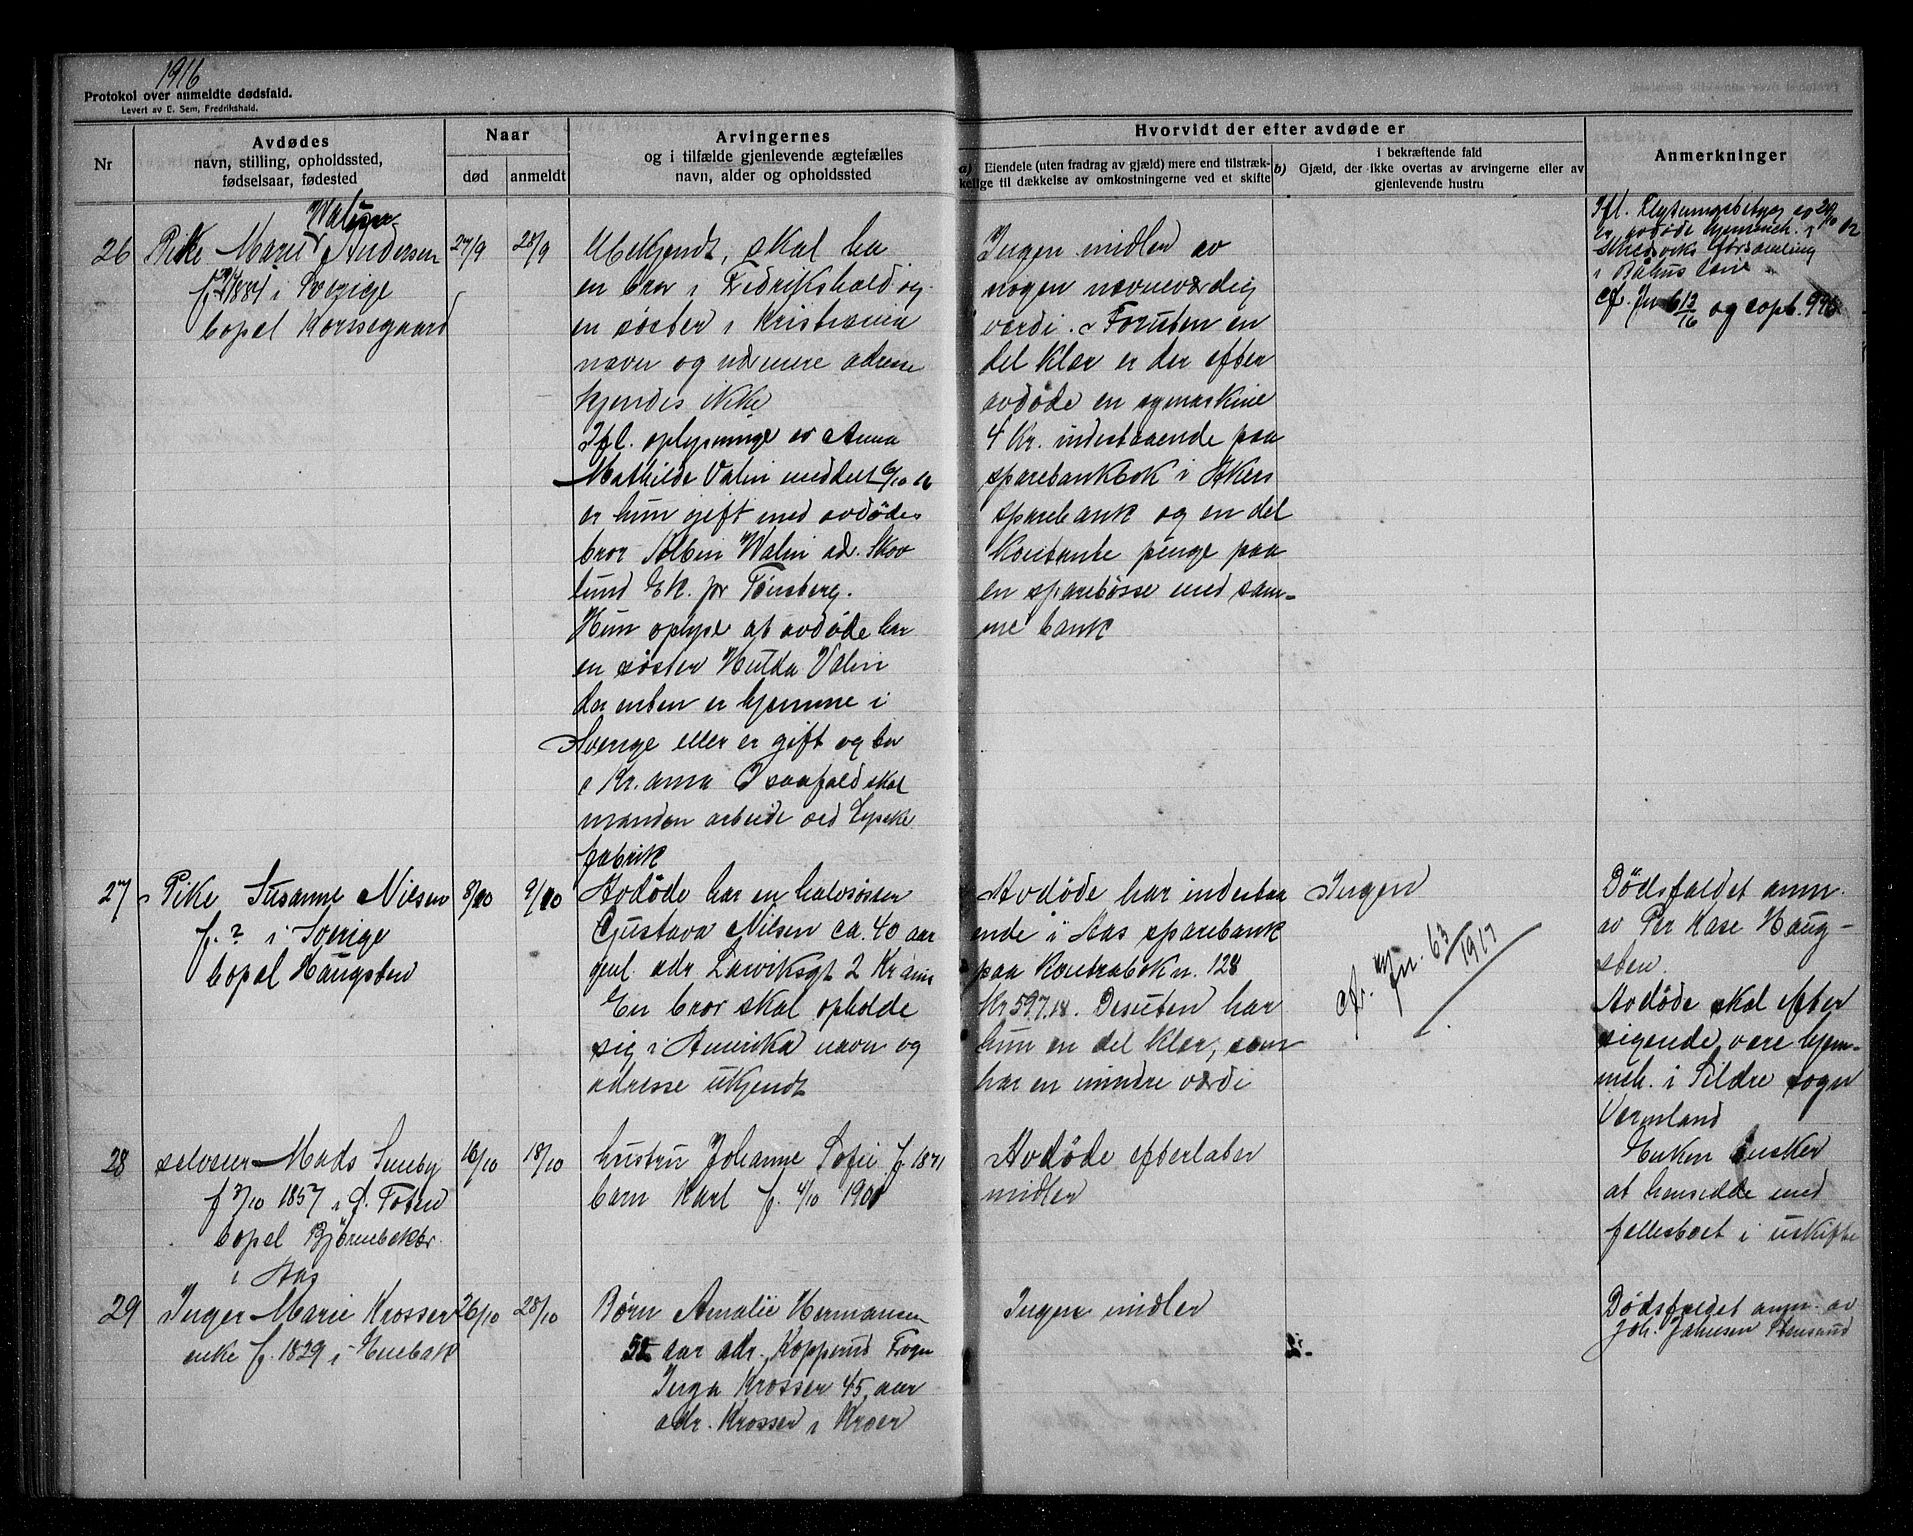 1916
Protokol over anmeldte dødsfald.
Levert av C. Sem, Fredrikshald.
Nr
Avdødes
navn, stilling, opholdssted,
fødselsaar, fødested
Naar
død
anmeldt
Arvingernes
og i tilfælde gjenlevende ægtefælles
navn, alder og opholdssted
Hvorvidt der efter avdøde er
a) Eiendele (uten fradrag av gjæld) mere end tilstræk-
kelige til dækkelse av omkostningerne ved et skifte
b) I bekræftende fald
Gjæld, der ikke overtas av arvingerne eller av
gjenlevende hustru
Anmerkninger
26
Pike Marie Andersen
1884 i Sverige
bopel Korsegaard
27/9
28/9
Ubekjendt, skal ha
en bror i Fredrikshald og
en søster i Kristiania
navn og nærmere adresse
kjendes ikke
Ifl. oplysninge av Anna
Mathilde Valin meddelt 6/10 16
er hun gift med avdødes
bror Albin Walin ad. Skov
lund Ek. pr Tønsberg.
Hun oplyse at avdøde har
en søster Hulda Valin
der enten er hjemme i
Sverige eller er gift og bor
i Kr.ania I saafald skal
manden arbeide ved
fabrik
Ingen midler av
nogen nævneværdig
værdi. Foruten en
del klær er der efter
avdøde en symaskine
4 Kr. indestaaende paa
sparebankbok i Akers
sparebank og en del
kontante penge paa
en sparebøsse med sam-
me bank
er avdøde hjemmeh. i
forsamling
i Båhus
og copb.
27
Pike Susanne Nilsen
f. ? i Sverige
bopel Haugsten
9/10
Avdøde har en halvsøster
Gustava Nilsen ca. 40 aar
gml. adr Larviksgt 2 Kr.ania
En bror skal opholde
sig i Amerika navn og
adresse ukjendt
Avdøde har indestaa
ende i Aas sparebank
paa kontrabok n. 128
Kr 597.18. Desuten har
hun en del klær, som
har en mindre værdi
Ingen
cfr. Jn. 63/1917
Dødsfaldet anm.
av Per Kase Haug-
sten.
Avdøde skal efter
sigende være hjem-
meh. i Sildre sogn
Værmland
28
selveier Mads Sundby
1857 i Ø. Toten
bopel Bjørnebekbr.
i Aas
16/10
18/10
hustru Johanne Sofie f. 1871
barn Karl f. 4/10 1900
Avdøde efterlater
midler
Enken ønsker
at hensidde med
fellesboet i uskifte
29
Inger Marie Krosser
enke f. 1829 i Enebak
26/10
28/10
Børn Amalie Hermansen
52 aar adr. Kopperud Frogn
Inga Krosser 45 aar
adr. Krosser i Kroer
Ingen midler
Dødsfaldet anm. av
Joh. Johnsen